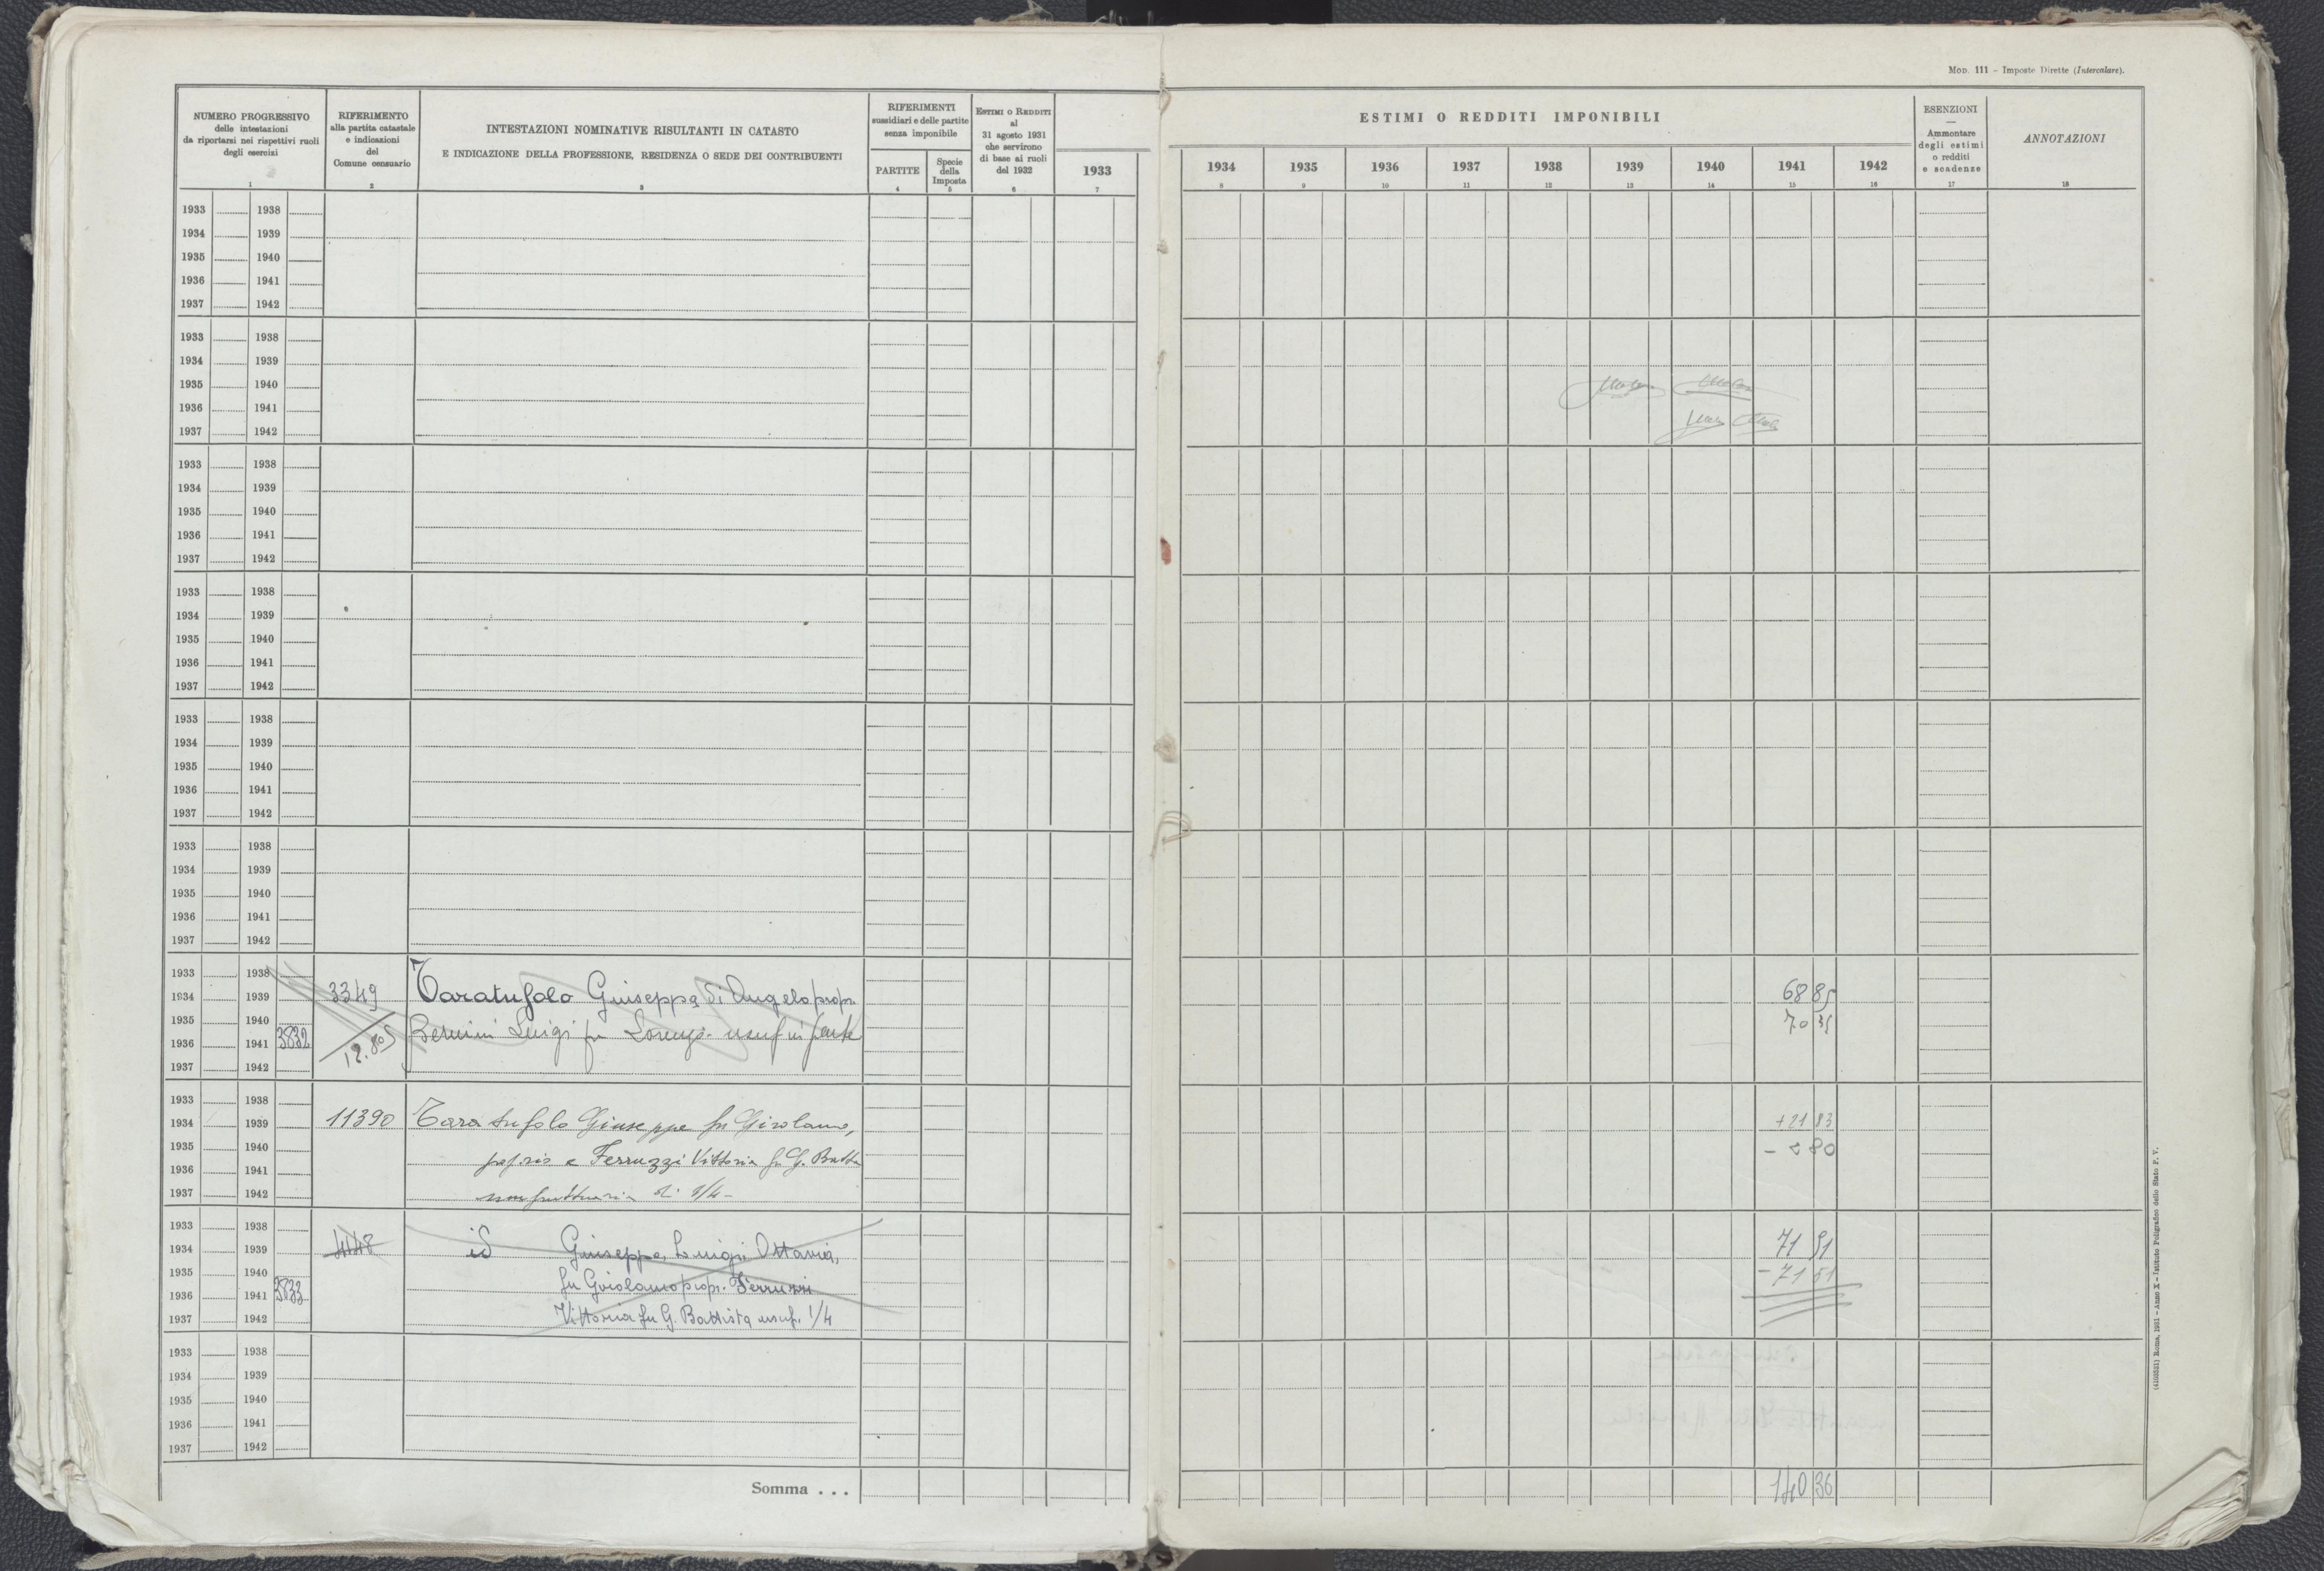 MOD. 111 – Imposte Dirette (Intercalare).
NUMERO PROGRESSIVO
delle intestazioni
da riportarsi nei rispettivi ruoli
degli esercizi
1
RIFERIMENTO
alla partita catastale
e indicazioni
del
Comune censuario
2
INTESTAZIONI NOMINATIVE RISULTANTI IN CATASTO
E INDICAZIONE DELLA PROFESSIONE, RESIDENZA O SEDE DEI CONTRIBUENTI
3
RIFERIMENTI
sussidiari e delle partite
senza imponibile
PARTITE
4
Specie
della
Imposta
5
ESTIMI O REDDITI
al
31 agosto 1931
che servirono
di base ai ruoli
del 1932
6
1933
7
ESTIMI O REDDITI IMPONIBILI
1934 1935 1936 1937 1938 1939 1940 1941 1942
8 9 10 11 12 13 14 15 16
ESENZIONI
—
Ammontare
degli estimi
o redditi
e scadenze
17
ANNOTAZIONI
18
1933 1938
1934 1939
1935 1940
1936 1941
1937 1942
1933 1938
1934 1939
1935 1940
1936 1941
1937 1942
1933 1938
1934 1939
1935 1940
1936 1941
1937 1942
1933 1938
1934 1939
1935 1940
1936 1941
1937 1942
1933 1938
1934 1939
1935 1940
1936 1941
1937 1942
1933 1938
1934 1939
1935 1940
1936 1941
1937 1942
1933 1938
1934 1939 3349 Taratufolo Giuseppa di Angelo propr. 68 85
1935 1940 Bernini Luigi fu Lorenzo usuf in parte 70 35
1936 1941 3832
1937 1942
1933 1938
1934 1939 11390 Taratufolo Giuseppe fu Girolamo, +21 83
1935 1940 e Ferruzzi Vittoria fu G. Batta 80
1936 1941
1937 1942 usufruttuaria di 1/4 -
1933 1938
1934 1939 4148 id Giuseppe, Luigi, Ottavia, 71 51
1935 1940 fu Girolamo propr. Ferruzzi - 71 51
1936 1941 3833
1937 1942 Vittoria fu G. Battista usuf. 1/4
1933 1938
1934 1939
1935 1940
1936 1941
1937 1942
Somma . . . 140 36
(4103251) Roma, 1931 – Anno X – Istituto Poligrafico dello Stato P. V.